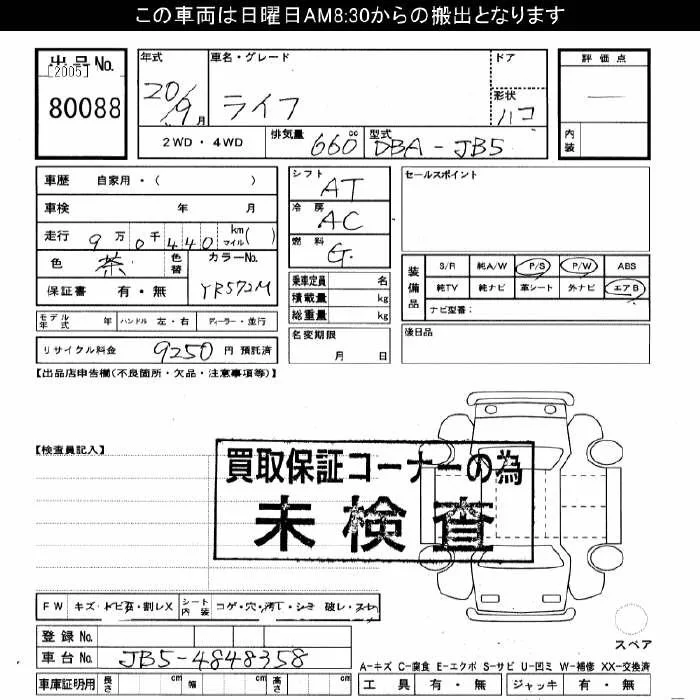 この車両は日曜日AM8:30からの搬出となります
出品No.
[2005]
80088
年式
20/9月
車名・グレード
ライフ
ドア
形状
ハコ
評価点
—
内装
2WD・4WD
排気量
660cc
型式
DBA-JB5
車歴 自家用・( )
車検 年 月
走行 9万0千440 km マイル( )
色 茶 色替
カラーNo.
YR572M
保証書 有・無
モデル年式 年 ハンドル 左・右 ディーラー・並行
リサイクル料金 9250円 預託済
シフト
AT
冷房
AC
燃料
G.
乗車定員 名
積載量 kg
総重量 kg
名変期限
月 日
セールスポイント
装備品
S/R 純A/W P/S P/W ABS
純TV 純ナビ 革シート 外ナビ エアB
ナビ型番:
後日品
【出品店申告欄(不良箇所・欠品・注意事項等)】
【検査員記入】
買取保証コーナーの為
未検査
FW キズ・トビ石・割レX シート内装 コゲ・穴・汚レ・シミ 破レ・スレ
登録No.
車台No. JB5-4848358
車庫証明用 長さ cm 幅 cm 高さ cm
スペア
A-キズ C-腐食 E-エクボ S-サビ U-凹ミ W-補修 XX-交換済
工具 有・無 ジャッキ 有・無